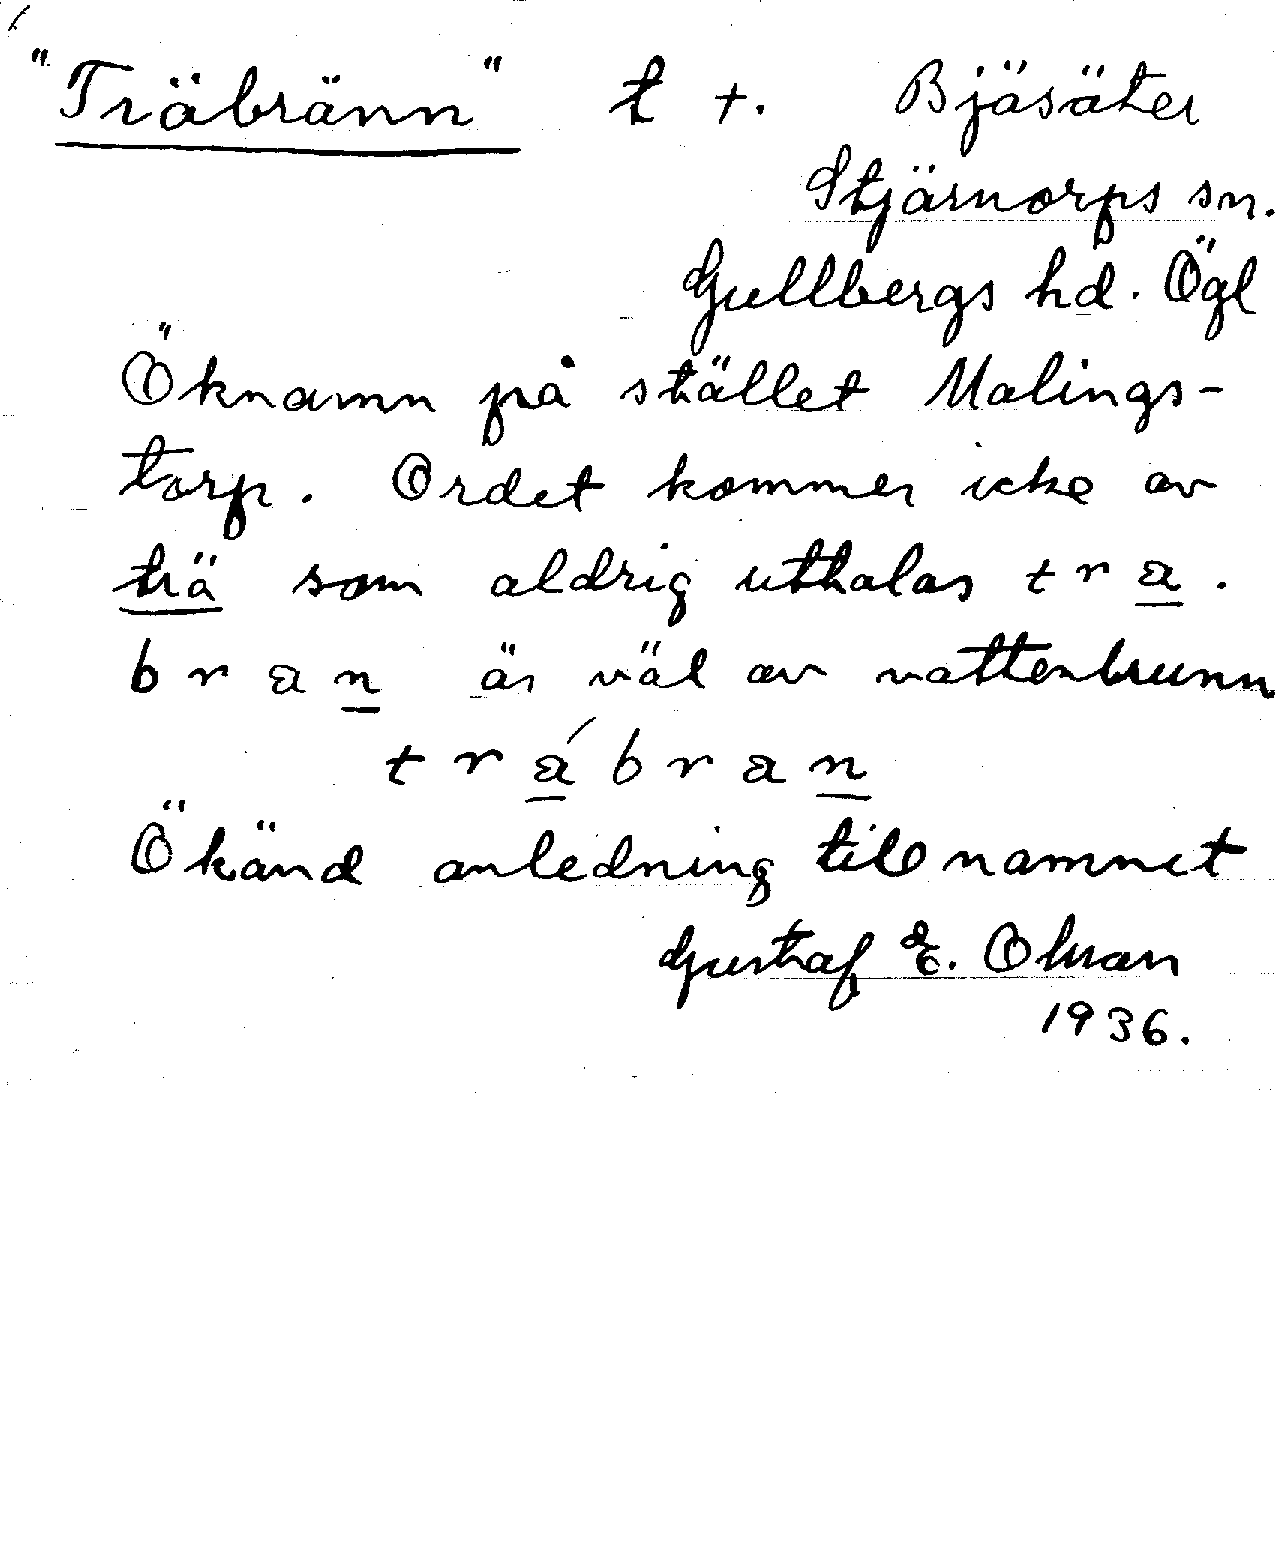 "Träbränn" t +. Bjäsäter
Stjärnorps sn.
Gullbergs hd. Ögl
Öknamn på stället Malings-
torp. Ordet kommer icke av
trä som aldrig uttalas t r a.
b r a n är väl av vattenbrunn
t r á b r a n
Ökänd anledning till namnet
Gustaf E. Olsson
1936.